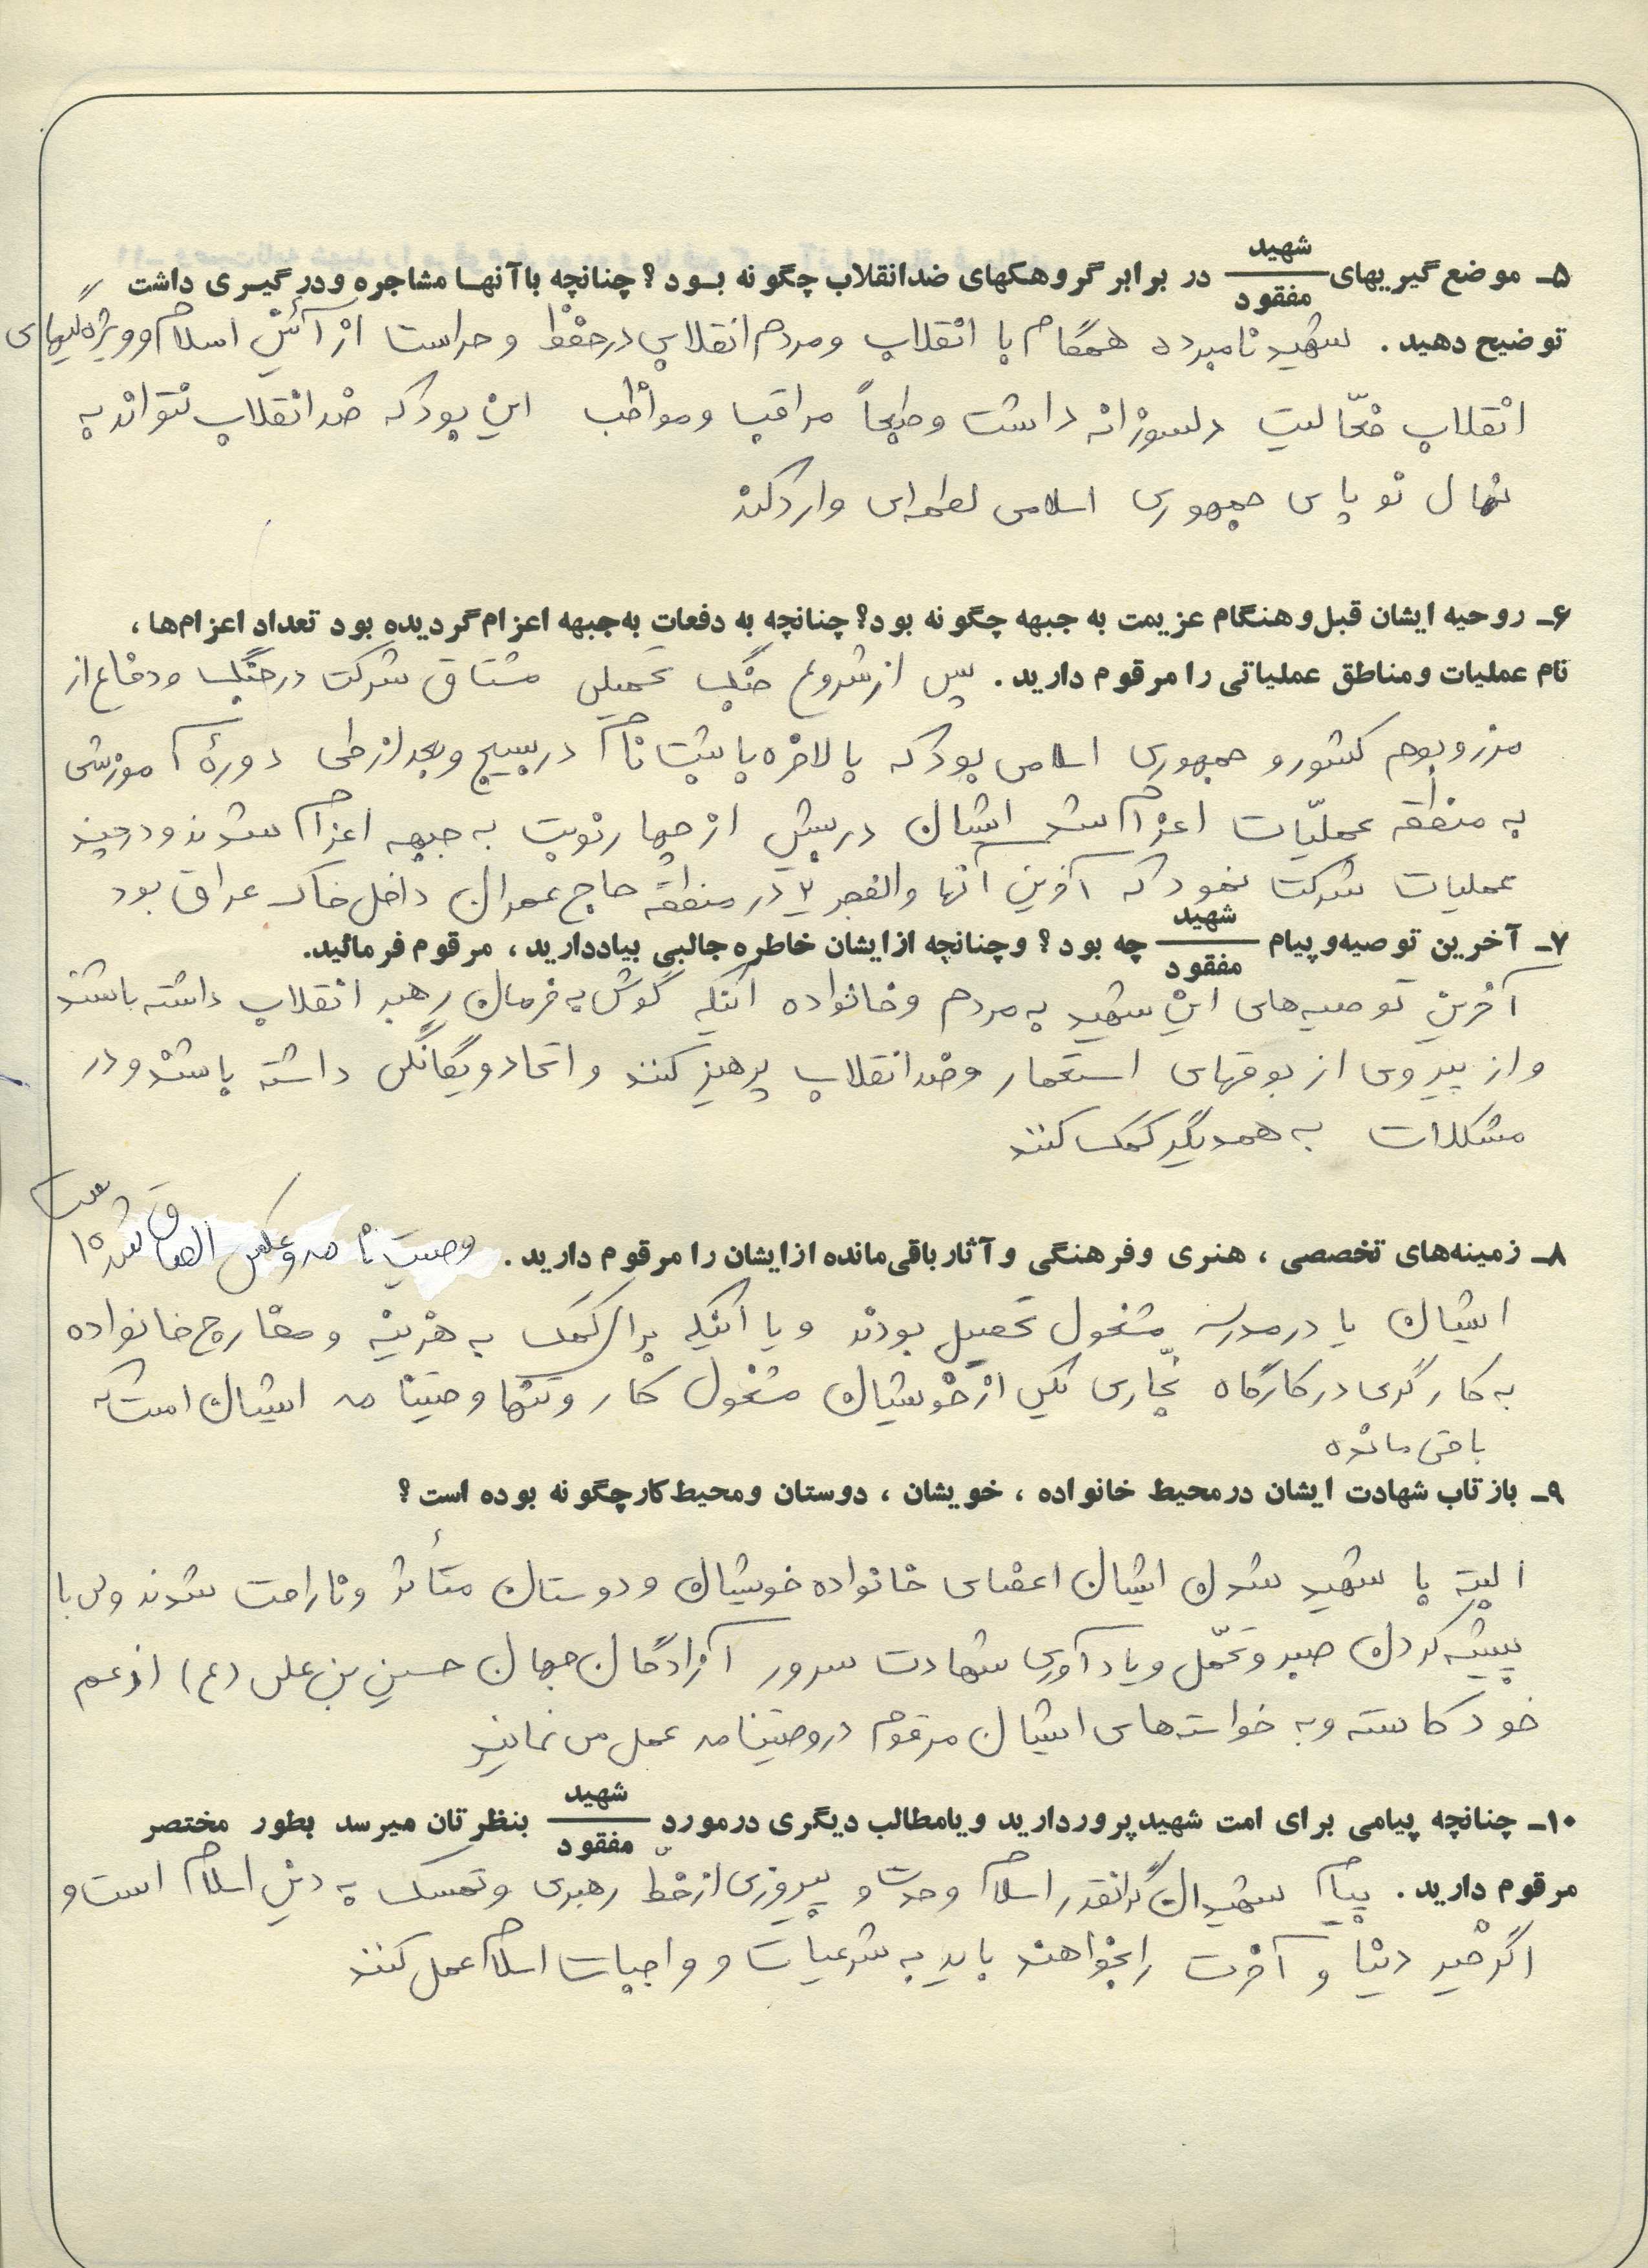 ۵ـ موضع گیریهای شهید / مفقود در برابر گروهکهای ضدانقلاب چگونه بود؟ چنانچه با آنها مشاجره و درگیری داشت
توضیح دهید. شهید نامبرده همگام با انقلاب و مردم انقلابی در حفظ و حراست از آئین اسلام و ویژه‌گیهای
انقلاب فعّالیت دلسوزانه داشت و طبعاً مراقب و مواظب این بود که ضد انقلاب نتواند به
نهال نو پای جمهوری اسلامی لطمه‌ای وارد کند
۶ـ روحیه ایشان قبل و هنگام عزیمت به جبهه چگونه بود؟ چنانچه به دفعات به جبهه اعزام گردیده بود تعداد اعزام‌ها،
نام عملیات و مناطق عملیاتی را مرقوم دارید. پس از شروع جنگ تحمیلی مشتاق شرکت در جنگ و دفاع از
مرز و بوم کشور و جمهوری اسلامی بود که بالاخره با ثبت نام در بسیج و بعد از طی دورهٔ آموزشی
به منطقه عملیّات اعزام شد ایشان در بیش از چهار نوبت به جبهه اعزام شدند و در چند
عملیات شرکت نمود که آخرین آنها والفجر ۲ در منطقه حاج عمران داخل خاک عراق بود
۷ـ آخرین توصیه و پیام شهید / مفقود چه بود؟ و چنانچه از ایشان خاطره جالبی بیاد دارید، مرقوم فرمائید.
آخرین توصیه‌های این شهید به مردم و خانواده اینکه گوش به فرمان رهبر انقلاب داشته باشند
و از پیروی از بوقهای استعمار و ضد انقلاب پرهیز کنند و اتحاد و یگانگی داشته باشند و در
مشکلات به همدیگر کمک کنند
۸ـ زمینه‌های تخصصی، هنری و فرهنگی و آثار باقی مانده از ایشان را مرقوم دارید. وصیت نامه و عکس الصاق شده است
ایشان یا در مدرسه مشغول تحصیل بودند و یا اینکه برای کمک به هزینه و مخارج خانواده
به کارگری در کارگاه نجّاری یکی از خویشان مشغول کار و تنها وصیتنامه ایشان است که
باقی مانده
۹ـ بازتاب شهادت ایشان در محیط خانواده، خویشان، دوستان و محیط کار چگونه بوده است؟
البته با شهید شدن ایشان اعضای خانواده خویشان و دوستان متأثر و ناراحت شدند ولی با
پیشه کردن صبر و تحمّل و یادآوری شهادت سرور آزادگان جهان حسین بن علی (ع) از غم
خود کاسته و به خواسته‌های ایشان مرقوم در وصیتنامه عمل می نمایند
۱۰ـ چنانچه پیامی برای امت شهید پرور دارید و یا مطالب دیگری در مورد شهید / مفقود بنظرتان میرسد بطور مختصر
مرقوم دارید. پیام شهیدان گرانقدر اسلام وحدت و پیروزی از خطّ رهبری و تمسک به دین اسلام است و
اگر خیر دنیا و آخرت را بخواهند باید به شرعیات و واجبات اسلام عمل کنند